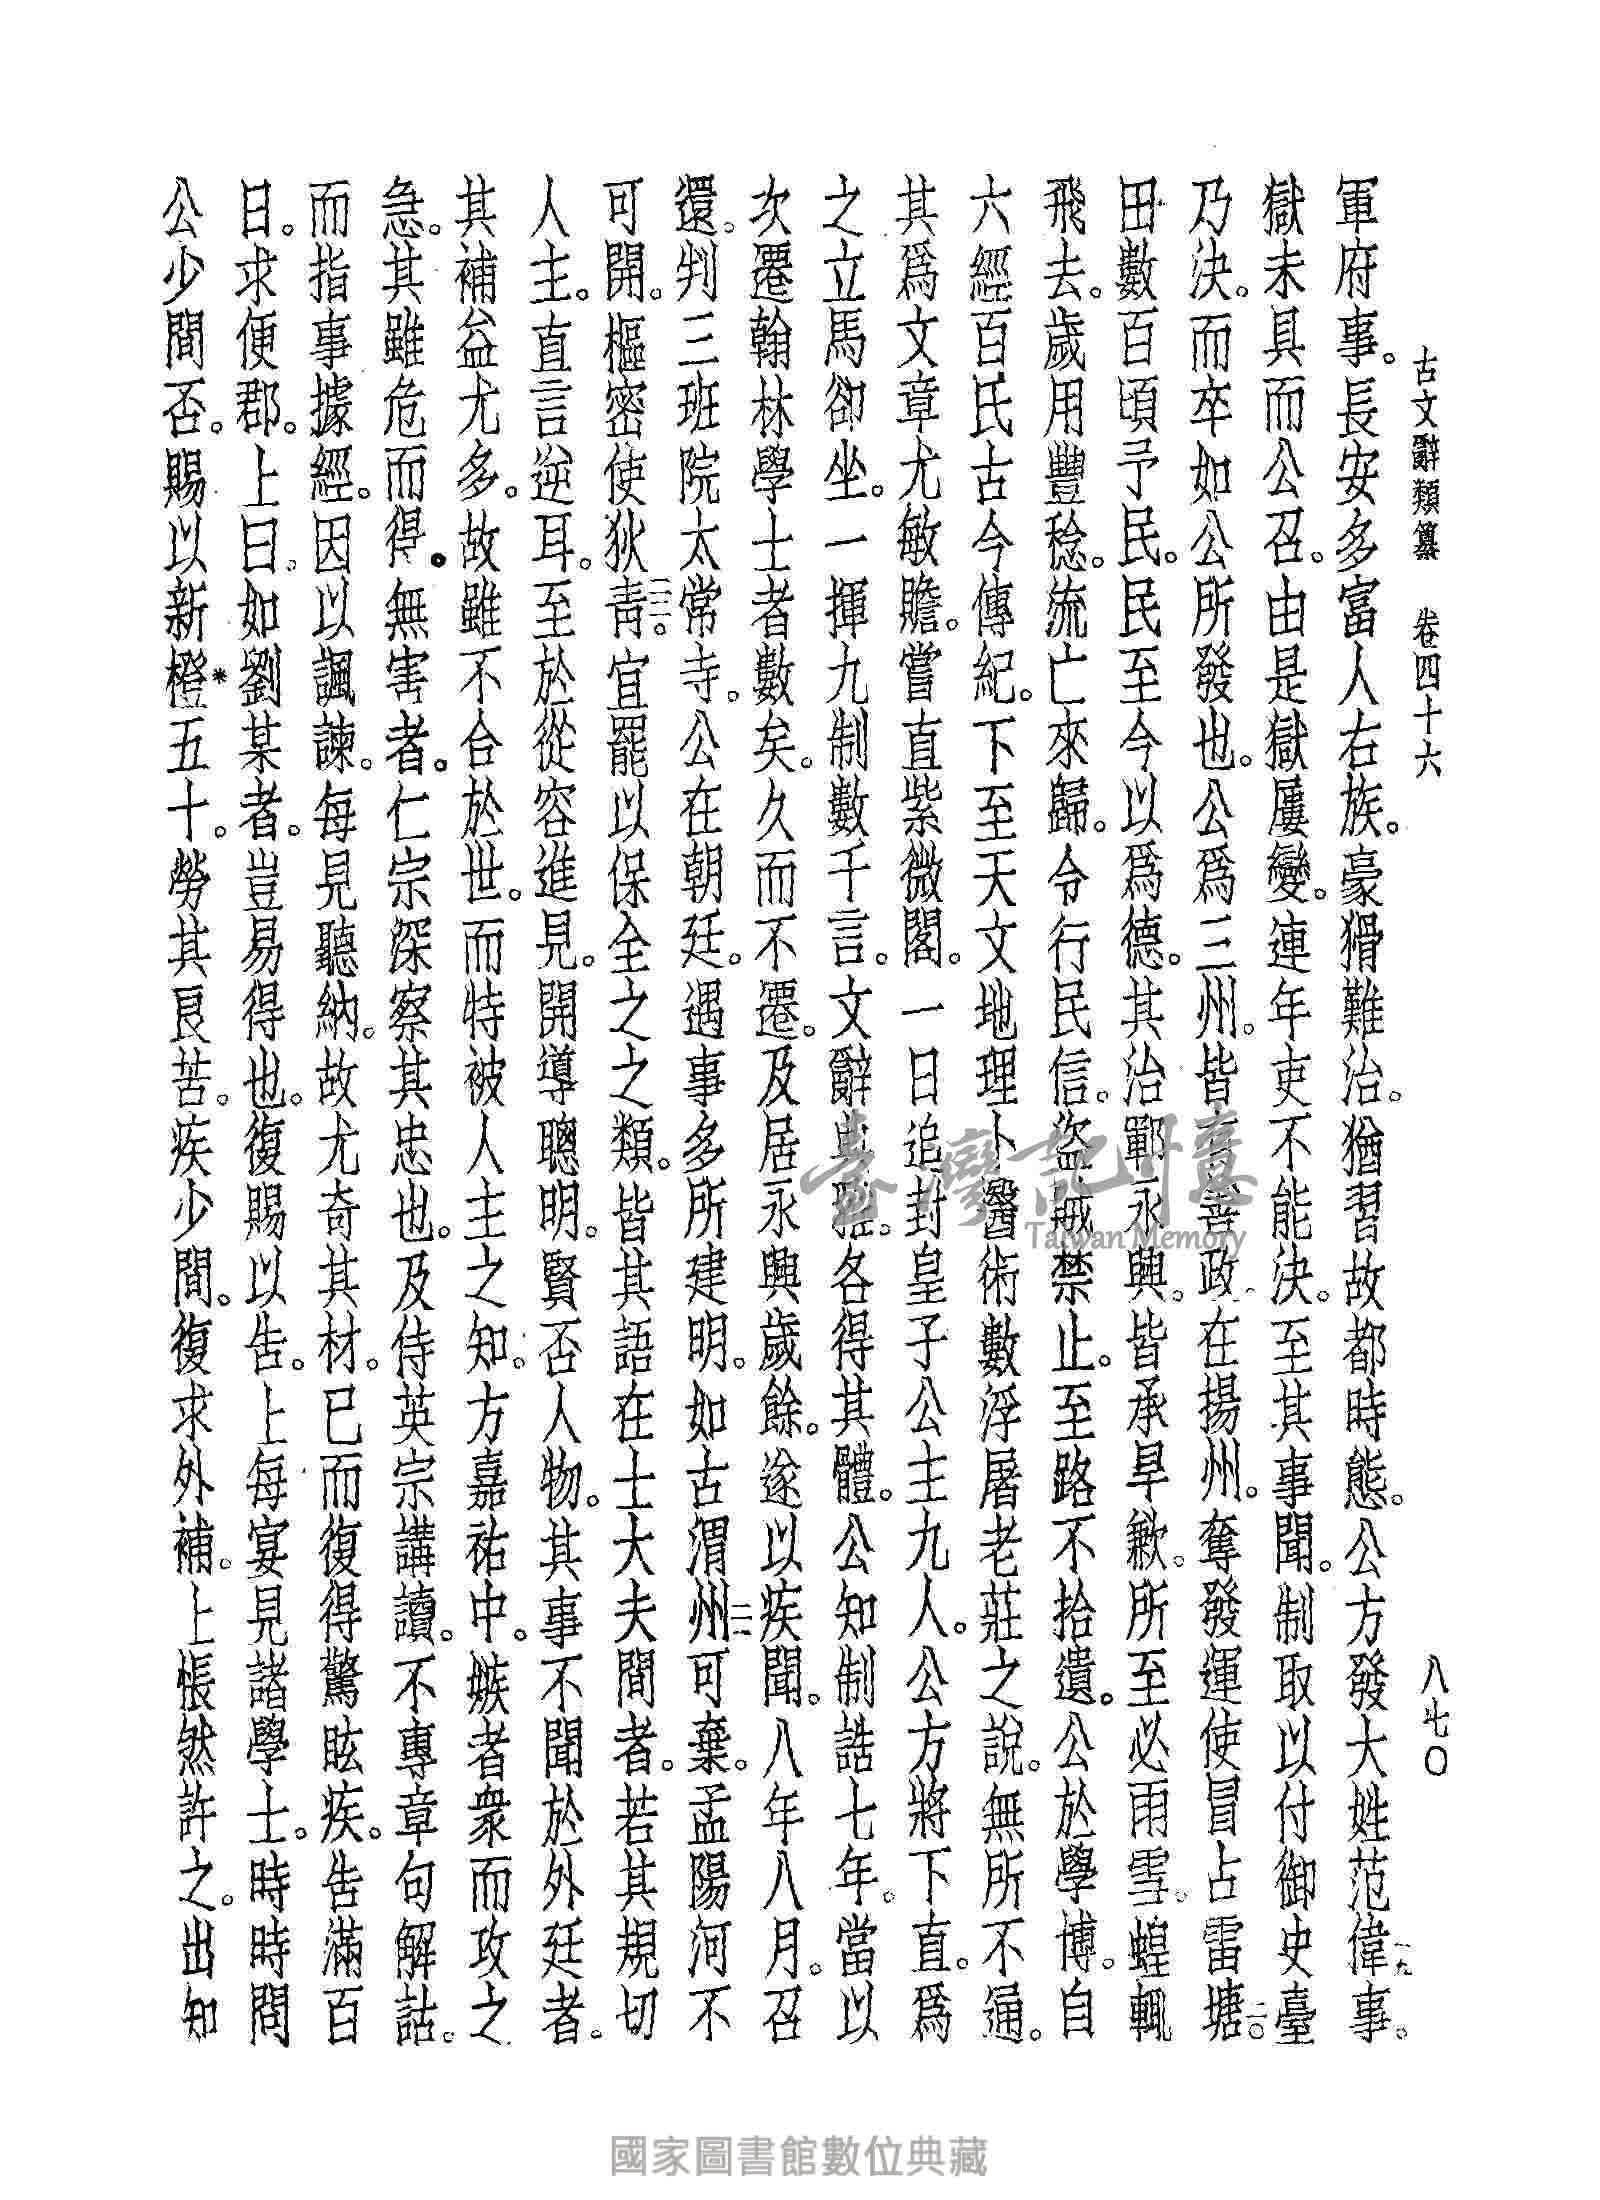 古文辭類纂　卷四十六
八七〇
軍府事。長安多富人右族。豪猾難治。猶習故都時態。公方發大姓范偉一九事。
獄未具而公召。由是獄屢變。連年吏不能決。至其事聞。制取以付御史臺
乃決。而卒如公所發也。公爲三州。皆有善政。在揚州。奪發運使冒占雷塘二〇。
田數百頃予民。民至今以爲德。其治鄆永興。皆承旱歉。所至必雨雪。蝗輒
飛去。歲用豐稔。流亡來歸。令行民信。盜賊禁止。至路不拾遺。公於學博。自
六經百氏古今傳紀。下至天文地理卜醫術數浮屠老莊之說。無所不通。
其爲文章尤敏贍。嘗直紫微閣。一日追封皇子公主九人。公方將下直。爲
之立馬卻坐。一揮九制數千言。文辭典雅。各得其體。公知制誥七年。當以
次遷翰林學士者數矣。久而不遷。及居永興歲餘。遂以疾聞。八年八月。召
還。判三班院太常寺。公在朝廷。遇事多所建明。如古渭州二一可棄。孟陽河不
可開。樞密使狄青二二。宜罷以保全之之類。皆其語在士大夫間者。若其規切
人主。直言逆耳。至於從容進見。開導聰明。賢否人物。其事不聞於外廷者。
其補益尤多。故雖不合於世。而特被人主之知。方嘉祐中。嫉者衆而攻之
急。其雖危而得。無害者。仁宗深察其忠也。及侍英宗講讀。不專章句解詁。
而指事據經。因以諷諫。每見聽納。故尤奇其材。已而復得驚眩疾。告滿百
日。求便郡。上曰。如劉某者。豈易得也。復賜以告。上每宴見諸學士。時時問
公少間否。賜以新橙*五十。勞其良苦。疾少間。復求外補。上悵然許之。出知
臺灣記憶
Taiwan Memory
國家圖書館數位典藏